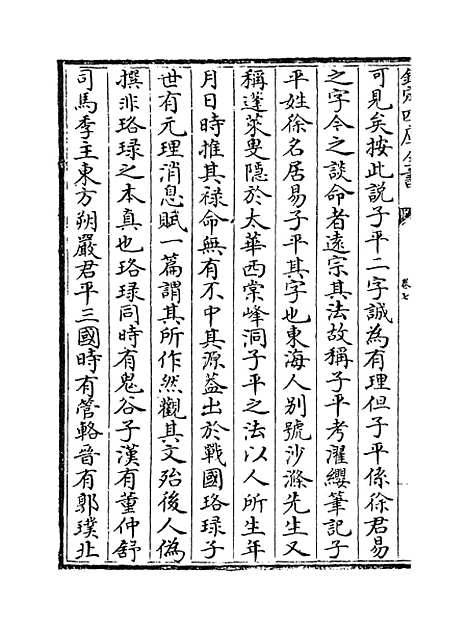 欽定四庫全書
卷七
可見矣按此說子平二字誠為有理但子平係徐君易
之字今之談命者遠宗其法故稱子平考濯纓筆記子
平姓徐名居易子平其字也東海人别號沙滌先生又
稱蓬萊叟隱於太華西棠峰洞子平之法以人所生年
月日時推其禄命無有不中其源葢出於戰國珞琭子
世有元理消息賦一篇謂其所作然觀其文殆後人偽
撰非珞琭之本真也珞琭同時有鬼谷子漢有董仲舒
司馬季主東方朔嚴君平三國時有管輅晉有郭璞北